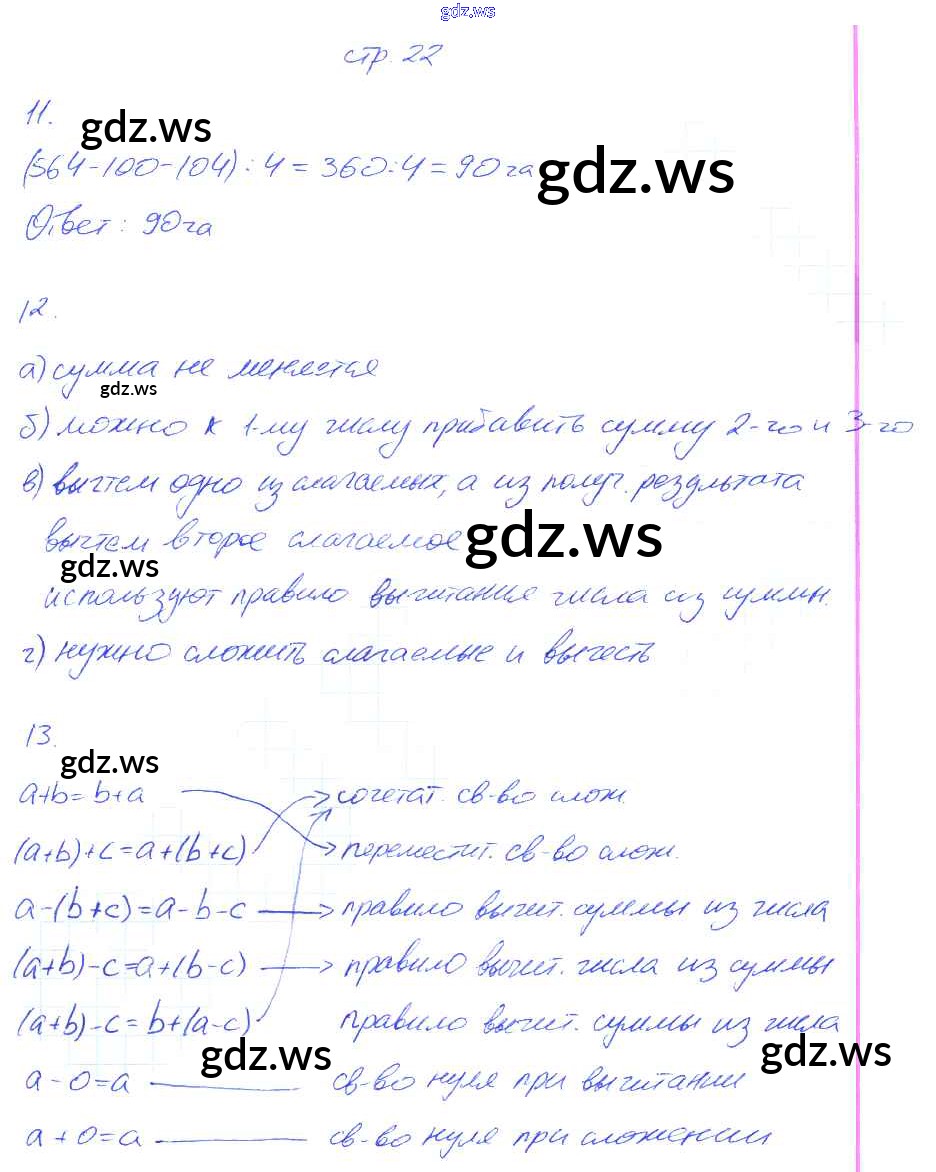 gdz.ws
стр. 22
11.
gdz.ws
(564-100-104) : 4 = 360:4 = 90 га
gdz.ws
Ответ: 90 га
12.
а) сумма не меняется
gdz.ws
б) можно к 1-му числу прибавить сумму 2-го и 3-го
в) вычтем одно из слагаемых, а из получ. результата
вычтем второе слагаемое
gdz.ws
gdz.ws
используют правило вычитания числа из суммы.
г) нужно сложить слагаемые и вычесть
13.
gdz.ws
a+b=b+a сочетат. св-во слож.
(a+b)+c=a+(b+c) переместит. св-во слож.
a-(b+c)=a-b-c правило вычит. суммы из числа
(a+b)-c=a+(b-c) правило вычит. числа из суммы
(a+b)-c=b+(a-c) правило вычит. суммы из числа
gdz.ws gdz.ws
a-0=a св-во нуля при вычитании
a+0=a св-во нуля при сложении